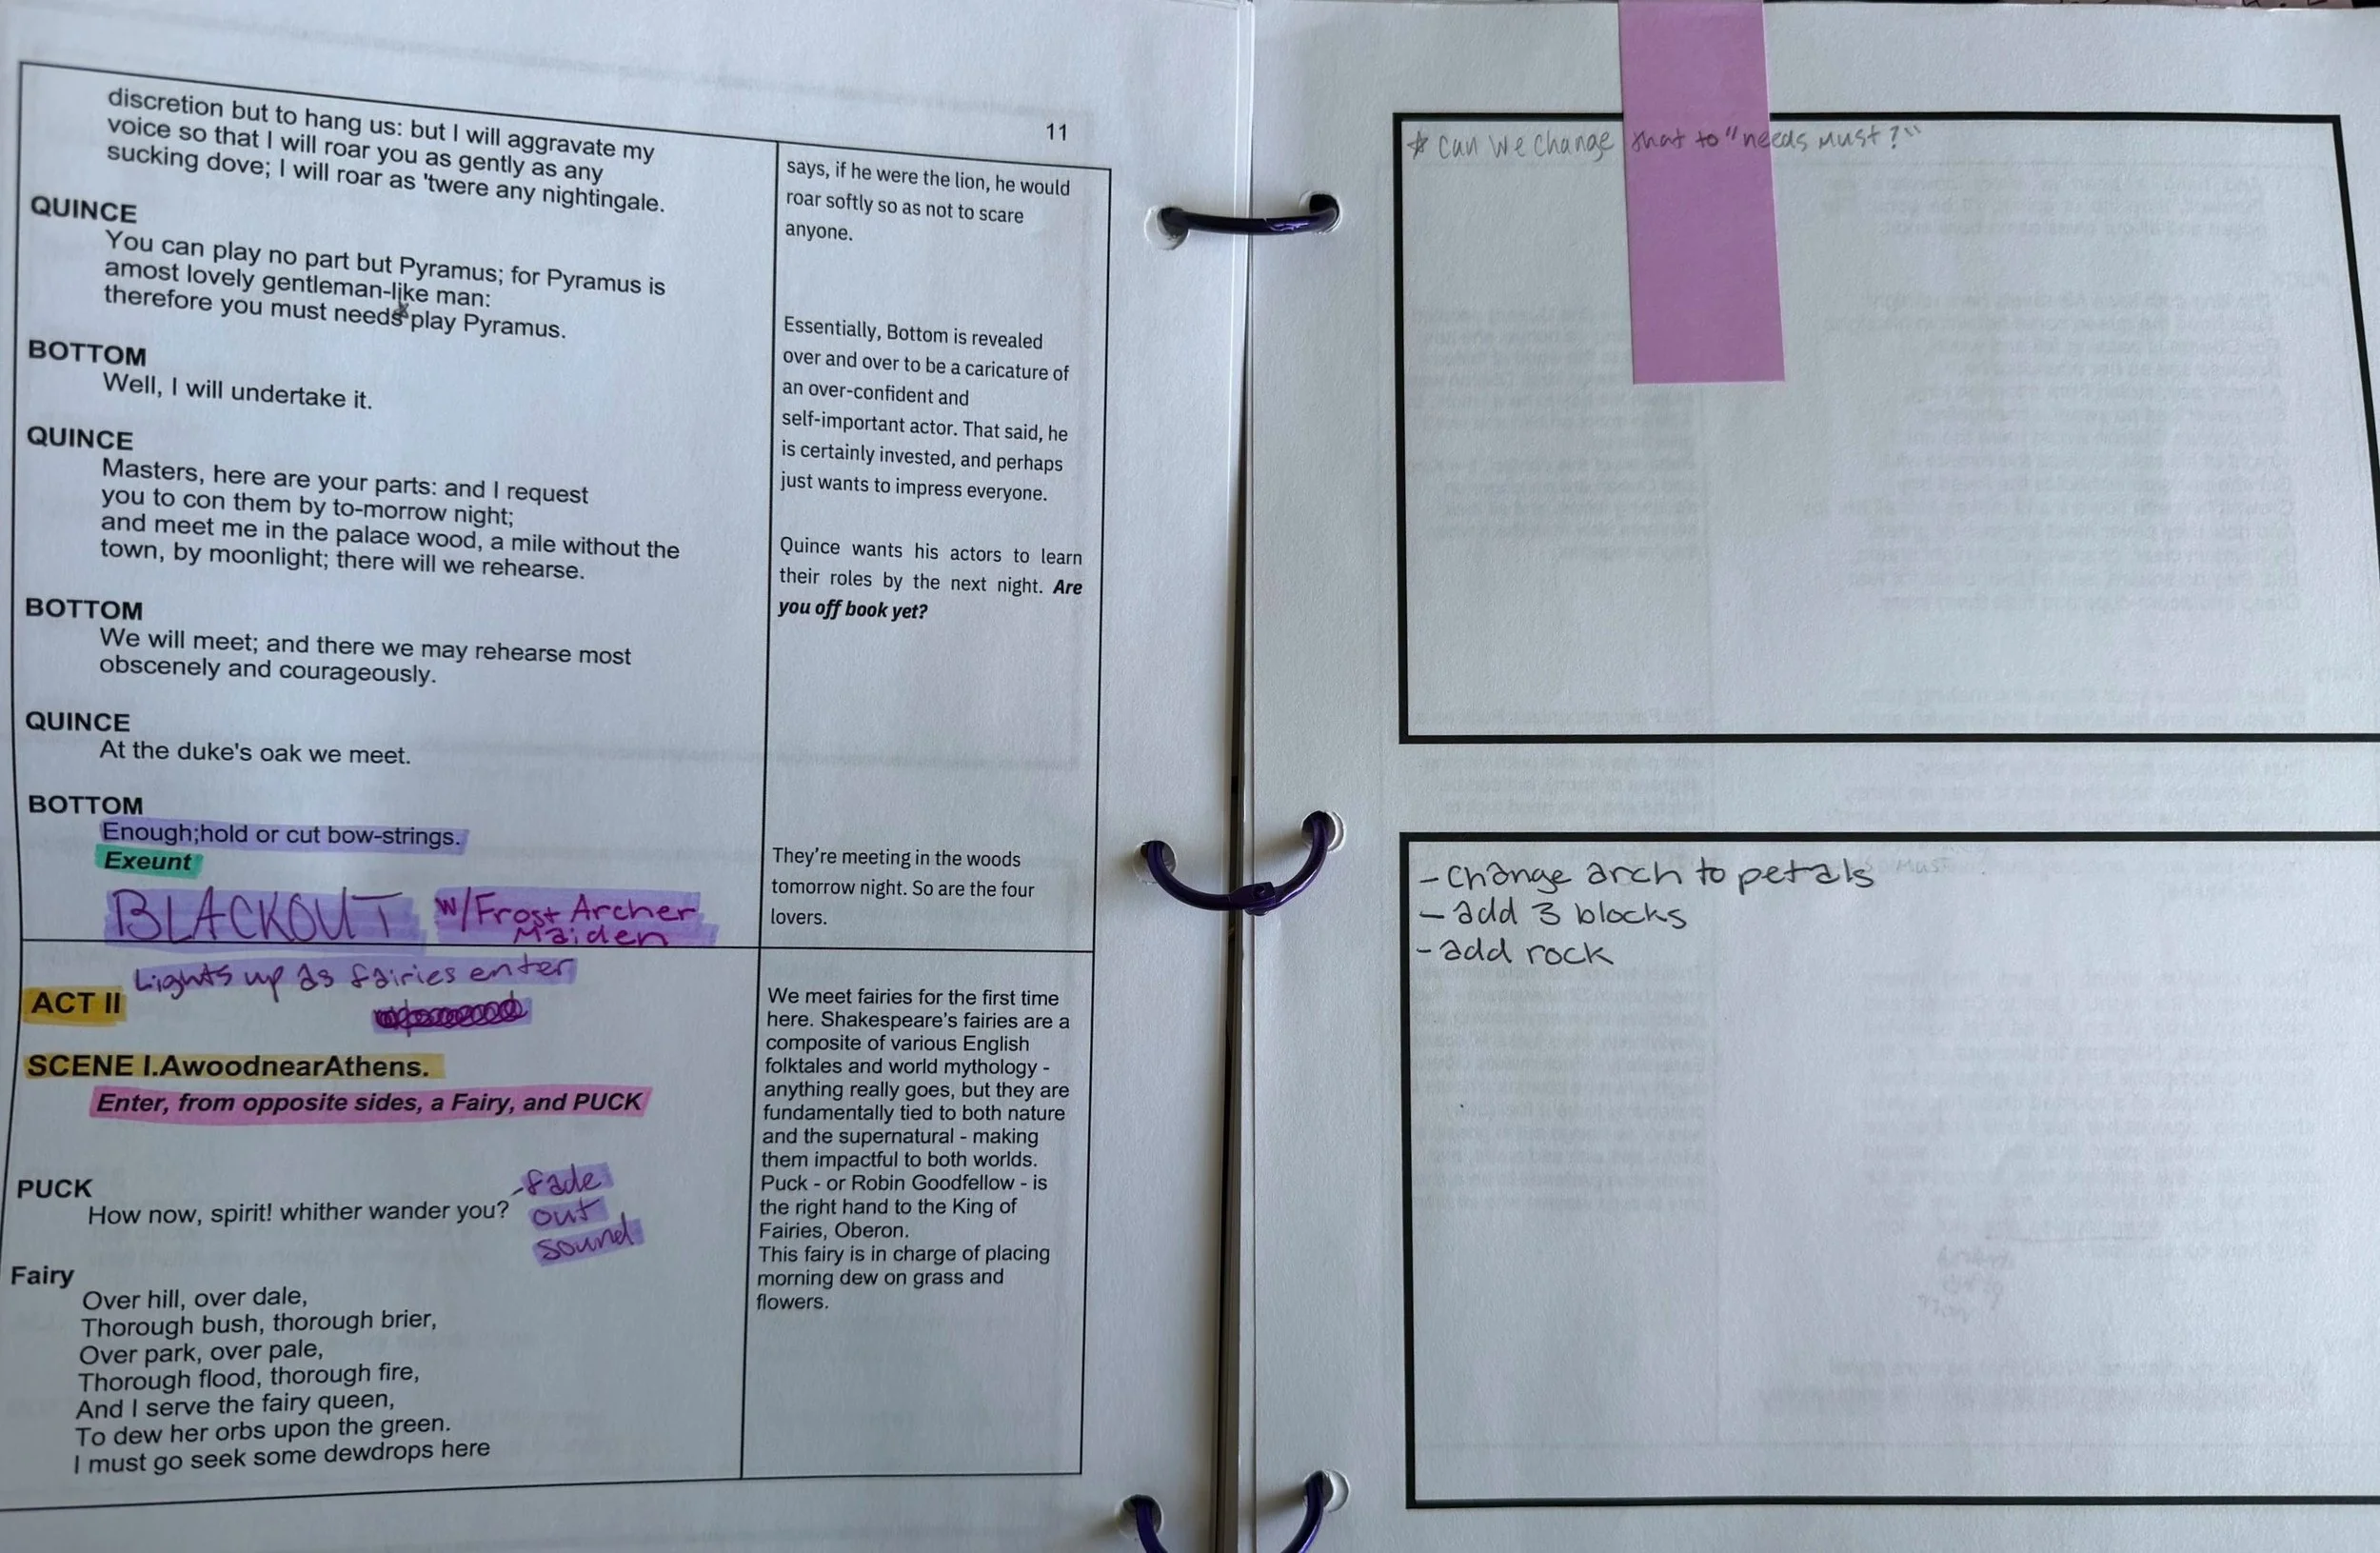 11
discretion but to hang us: but I will aggravate my
voice so that I will roar you as gently as any
sucking dove; I will roar as 'twere any nightingale.
QUINCE
You can play no part but Pyramus; for Pyramus is
amost lovely gentleman-like man:
therefore you must needs* play Pyramus.
BOTTOM
Well, I will undertake it.
QUINCE
Masters, here are your parts: and I request
you to con them by to-morrow night;
and meet me in the palace wood, a mile without the
town, by moonlight; there will we rehearse.
BOTTOM
We will meet; and there we may rehearse most
obscenely and courageously.
QUINCE
At the duke's oak we meet.
BOTTOM
Enough;hold or cut bow-strings.
Exeunt
BLACKOUT w/Frost Archer
Maiden
says, if he were the lion, he would
roar softly so as not to scare
anyone.
Essentially, Bottom is revealed
over and over to be a caricature of
an over-confident and
self-important actor. That said, he
is certainly invested, and perhaps
just wants to impress everyone.
Quince wants his actors to learn
their roles by the next night. Are
you off book yet?
They're meeting in the woods
tomorrow night. So are the four
lovers.
Lights up as fairies enter
ACT II
SCENE I.AwoodnearAthens.
Enter, from opposite sides, a Fairy, and PUCK
PUCK
How now, spirit! whither wander you?
-fade
out
sound
Fairy
Over hill, over dale,
Thorough bush, thorough brier,
Over park, over pale,
Thorough flood, thorough fire,
And I serve the fairy queen,
To dew her orbs upon the green.
I must go seek some dewdrops here
We meet fairies for the first time
here. Shakespeare's fairies are a
composite of various English
folktales and world mythology -
anything really goes, but they are
fundamentally tied to both nature
and the supernatural - making
them impactful to both worlds.
Puck - or Robin Goodfellow - is
the right hand to the King of
Fairies, Oberon.
This fairy is in charge of placing
morning dew on grass and
flowers.
* Can we change that to "needs must?"
- change arch to petals
- add 3 blocks
- add rock